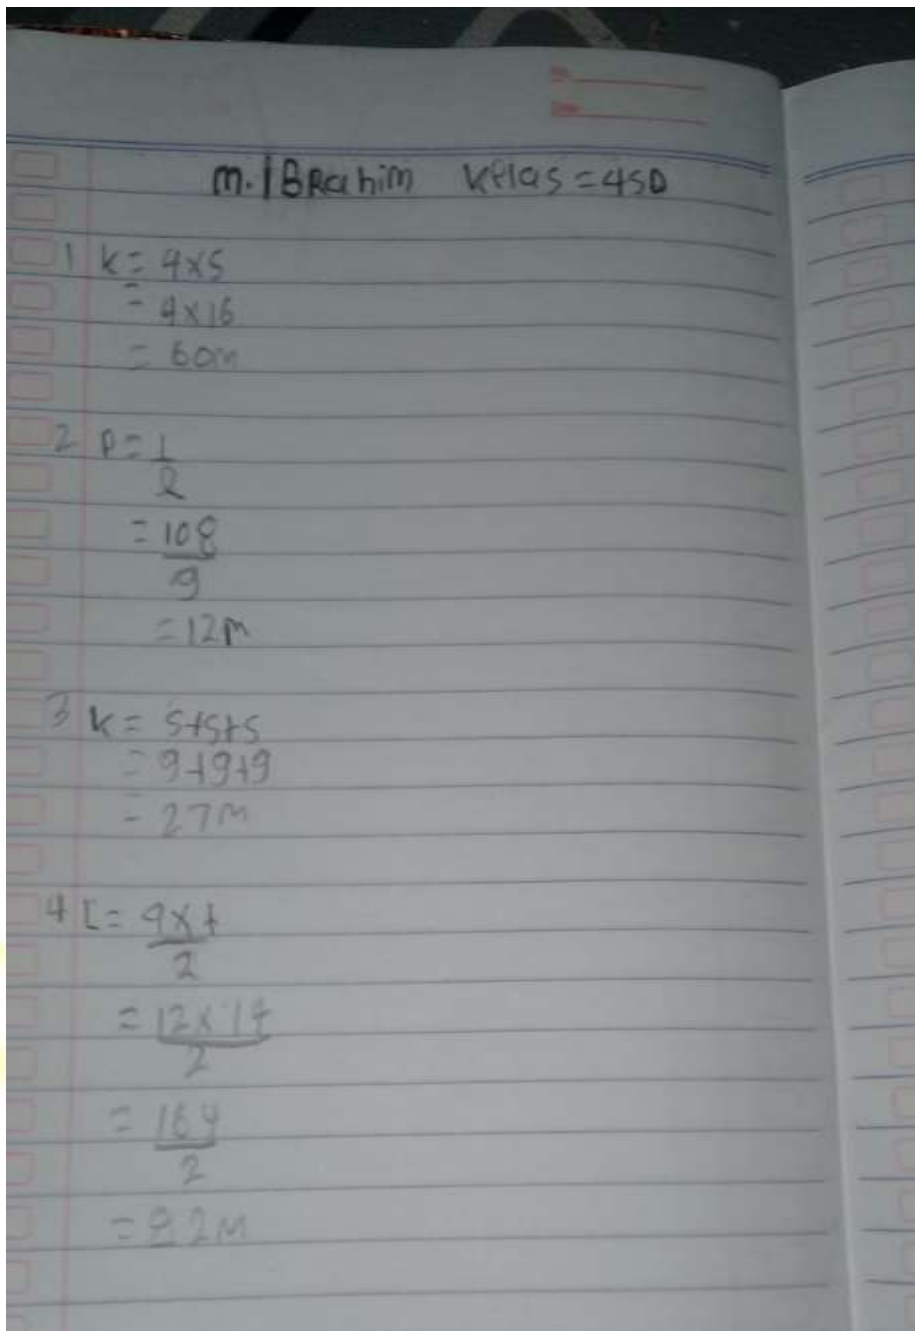 M. IBRahim Kelas = 4SD
1 K = 4x5
= 4x16
= 60m
2 P = L
l
= 108
9
= 12m
3 K = s+s+s
= 9+9+9
= 27m
4 L = 9xt
2
= 12x14
2
= 164
2
= 82m